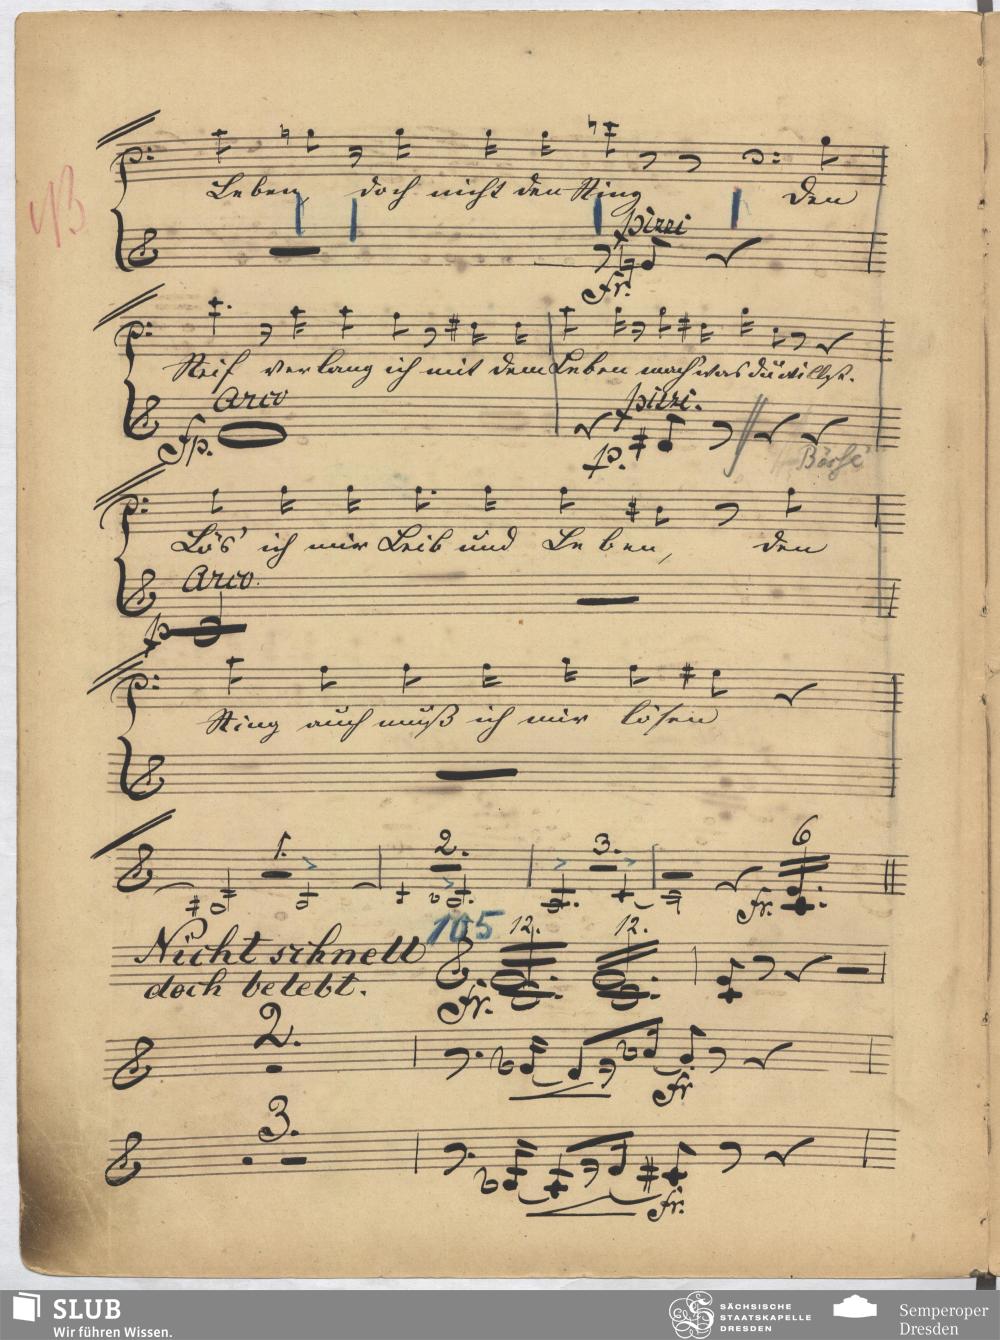 NB
Leben, doch nicht den Ring den
pizzi
Fr.
Reif verlang ich mit dem Leben mach' was du willst.
Arco
pizzi.
fp.
p.
Lös' ich mir Leib und Leben, den
Arco.
p
Ring auch muß ich mir lösen
1. 2. 3. 6
Fr.
Nicht schnell
doch belebt.
105
12. 12.
Fr.
2.
Fr.
3.
Fr.
SLUB
Wir führen Wissen.
SÄCHSISCHE
STAATSKAPELLE
DRESDEN
Semperoper
Dresden